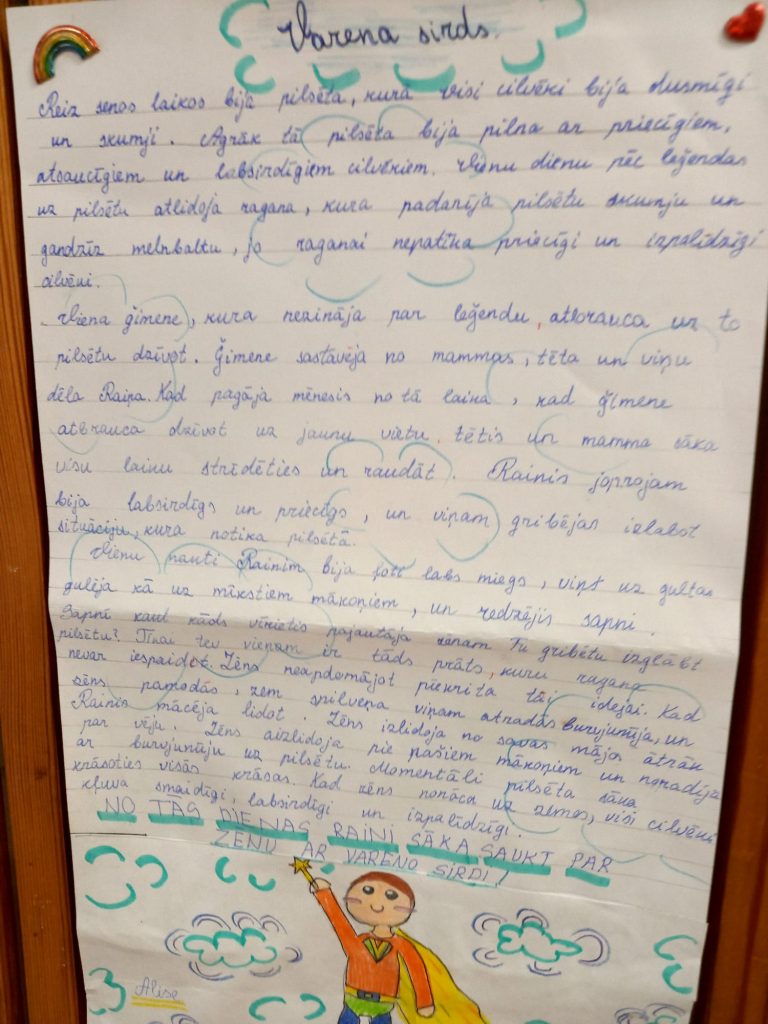 Varena sirds.
Reiz senos laikos bija pilsēta, kurā visi cilvēki bija dusmīgi
un skumji. Agrāk tā pilsēta bija pilna ar priecīgiem,
atsaucīgiem un labsirdīgiem cilvēkiem. Vienu dienu pēc leģendas
uz pilsētu atlidoja ragana, kura padarīja pilsētu skumju un
gandzīz melnbaltu, jo raganai nepatika priecīgi un izpalīdzīgi
cilvēki.
Viena ģimene, kura nezināja par leģendu, atbrauca uz to
pilsētu dzīvot. Ģimene sastāvēja no mammas, tēta un viņu
dēla Raiņa. Kad pagāja mēnesis no tā laika, kad ģimene
atbrauca dzīvot uz jaunu vietu, tētis un mamma sāka
visu laiku strīdēties un raudāt. Rainis joprojam
bija labsirdīgs un priecīgs, un viņam gribējās izlabot
situāciju, kura notika pilsētā.
Vienu nakti Rainim bija ļoti labs miegs, viņš uz gultas
gulēja kā uz mīkstiem mākoņiem, un redzējis sapni.
Sapnī kaut kāds vīrietis pajautāja zēnam Tu gribētu izglābt
pilsētu? Tikai tev vienam ir tāds prāts, kuru ragana
nevar iespaidot. Zēns neapdomājot piekrita tāi idejai. Kad
zēns pamodās, zem spilvena viņam atradās burvjunūja, un
Rainis mācēja lidot. Zēns izlidoja no savas mājas ātrāk
par vēju. Zēns aizlidoja pie pašiem mākoņiem un novadīja
ar burvjunūju uz pilsētu. Momentāli pilsēta sāka
krāsoties visās krāsās. Kad zēns nonāca uz zemes, visi cilvēki
kļuva smaidīgi, labsirdīgi un izpalīdzīgi.
NO TĀS DIENAS RAINI SĀKA SAUKT PAR
ZĒNU AR VARENO SIRDI!
Alise